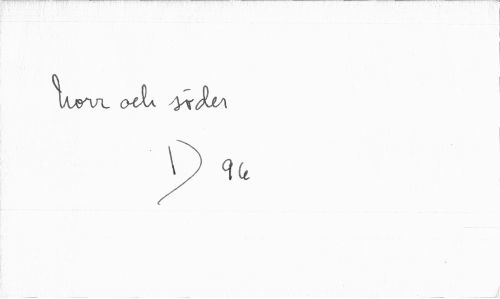 Norr och söder
D 96